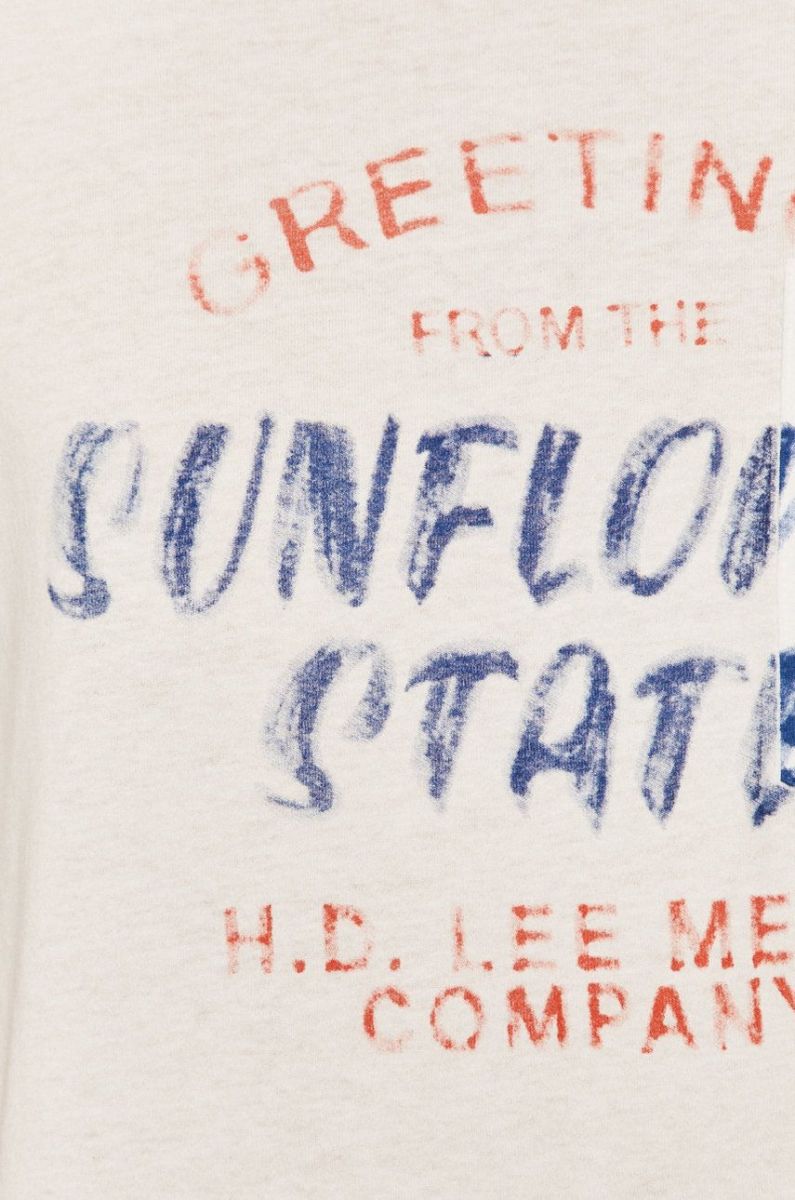 GREETIN
FROM THE
SUNFLOW
STATE
H.D. LEE ME
COMPANY